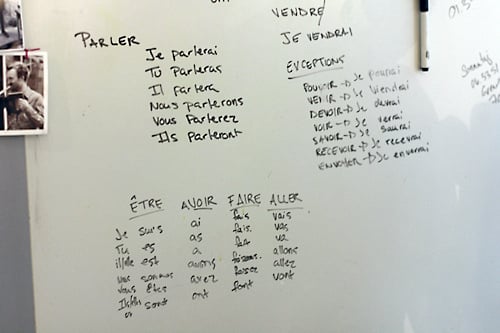 VENDRE
PARLER
JE VENDRAI
Je parlerai
Tu parleras
Il parlera
Nous parlerons
Vous parlerez
Ils parleront
EXCEPTIONS
POUVOIR → Je pourrai
VENIR → Je viendrai
DEVOIR → Je devrai
VOIR → Je verrai
SAVOIR → Je saurai
RECEVOIR → Je recevrai
ENVOYER → Je enverrai
ÊTRE AVOIR FAIRE ALLER
Je suis ai fais vais
Tu es as fais vas
il/elle est a fait va
nous sommes avons faisons allons
vous êtes avez allez
Ils/elles sont ont font vont